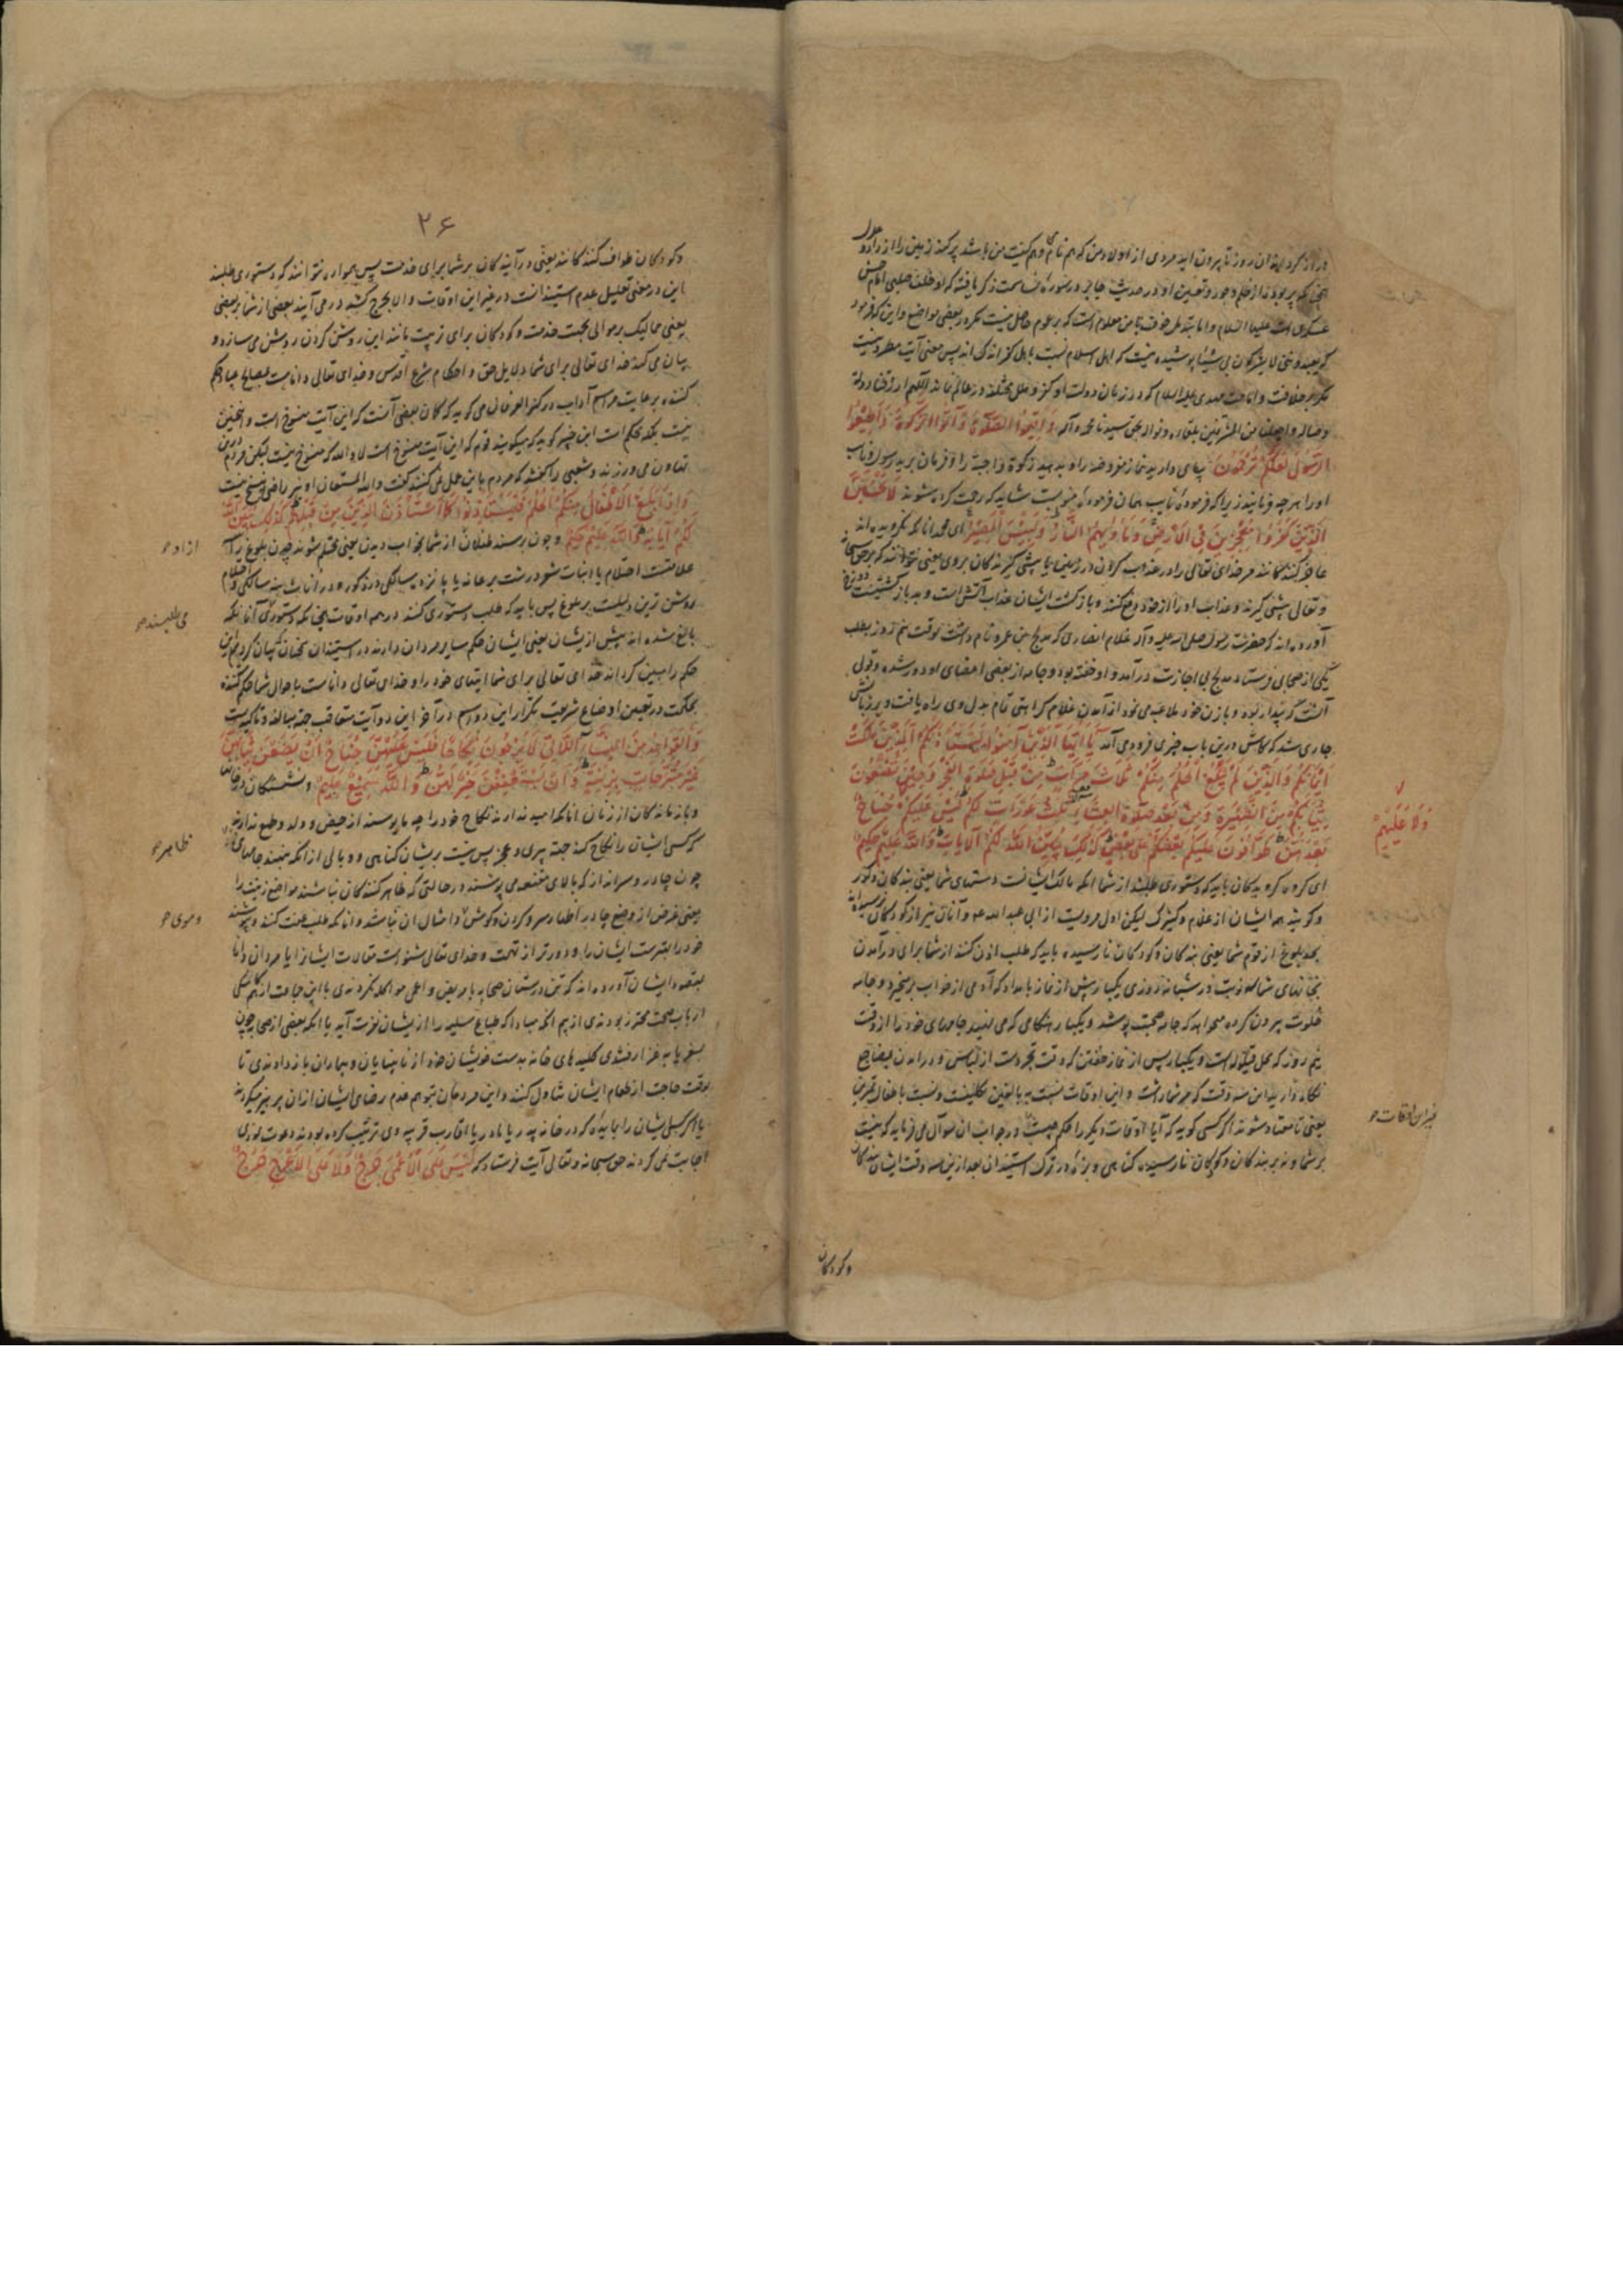 دراز گرداند ان روز تا بیرون اید مردی از اولاد من که هم نام و هم کنیت من باشد پر کند زمین را از داد و عدل
عسکری است علیهما السلام و اما
که یعبدوننی لا یشرکون بی شیئا پوشیده نیست که اهل اسلام نسبت باهل کفر اندک اند پس معنی آیت
بخلافت و امامت مهدی علیه السلام که در زمان دولت او کفر و ملل مختلفه در عالم نماند اللهم ارزقنا دولة
وصاله واجعلنا من بلقاءه ونواله بحق سیدنا محمد وآله وَأَقِيمُوا الصَّلٰوةَ وَآتُوا الزَّكٰوةَ وَأَطِيعُوا
الرَّسُولَ لَعَلَّكُمْ تُرْحَمُونَ بپای دارید نماز مفروضه را و بدهید زکوة واجبة را و فرمان برید رسول و نایب
او را هرچه فرمایند زیرا که فرموده نایب همان فرموده منوبست شاید که رحمت کرده شوند لَا تَحْسَبَنَّ
الَّذِينَ كَفَرُوا مُعْجِزِينَ فِي الْأَرْضِ وَمَأْوٰيهُمُ النَّارُ وَلَبِئْسَ الْمَصِيرُ ای محمد انانکه نگرویده اند
عاجز کنندکانند مر خدای تعالی را در عذاب کردن در زمین یا پیشی گیرندکان بروی یعنی نتوانند که بر حق سبحانه
وتعالی پیشی گیرند و عذاب او را از خود دفع کنند و بازگشت ایشان عذاب آتش است و بد بازگشتیست دوزخ
آورده اند که حضرت رسول صلی الله علیه وآله غلام انصاری که مدلج بن عمرو نام داشت بوقت نیم روز بطلب
یکی از صحابی فرستاد مدلج بی اجازت درآمد و او خفته بود و جامه از بعضی اعضای او دور شده وقولی
آنست که بیدار بود و با زن خود ملاعبه می نمود از آمدن غلام کراهتی تمام بدل وی راه یافت و بر زبانش
جاری شد که کاش درین باب چیزی فرود می آمد يَا أَيُّهَا الَّذِينَ آمَنُوا لِيَسْتَأْذِنْكُمُ الَّذِينَ مَلَكَتْ
أَيْمَانُكُمْ وَالَّذِينَ لَمْ يَبْلُغُوا الْحُلُمَ مِنْكُمْ ثَلَاثَ مَرَّاتٍ مِنْ قَبْلِ صَلٰوةِ الْفَجْرِ وَحِينَ تَضَعُونَ
ثِيَابَكُمْ مِنَ الظَّهِيرَةِ وَمِنْ بَعْدِ صَلٰوةِ الْعِشَاءِ ثَلٰثُ عَوْرَاتٍ لَكُمْ لَيْسَ عَلَيْكُمْ جُنَاحٌ
وَلَا عَلَيْهِمْ
بَعْدَهُنَّ طَوَّافُونَ عَلَيْكُمْ بَعْضُكُمْ عَلَى بَعْضٍ كَذٰلِكَ يُبَيِّنُ اللَّهُ لَكُمُ الْآيَاتِ وَاللَّهُ عَلِيمٌ حَكِيمٌ
ای گروه گرویدکان باید که دستوری طلبند از شما انکه مالک ایشانست دستهای شما یعنی بندکان ذکور
وگویند همه ایشان از غلام و کنیزک لیکن اول مرویست از ابی عبدالله ع و آنان نیز از کودکان نرسیده اند
بحد بلوغ از قوم شما یعنی بندکان و کودکان نارسیده باید که طلب اذن کنند از شما برای درآمدن
بخانهای شما سه نوبت در شبانه روزی یکبار پیش از نماز بامداد که آدمی از خواب برمیخیزد و جامه
خلوت بیرون کرده میخواهد که جامه صحبت پوشد و یکبار هنگامی که می نهید جامهای خود را از وقت
نیم روز که محل قیلوله است و یکبار پس از نماز خفتن که وقت تجرد است از لباس و درآمدن بمضاجع
نگاه دارید این سه وقت که مر شما راست و این اوقات نسبت به بالغین تکلیفست و نسبت باطفال تمرین
غیر این اوقات
یعنی تا معتاد شوند اگر کسی گوید که آیا اوقات دیگر را حکم چیست در جواب ان سوآل می فرماید که نیست
بر شما و نه بر بندکان و کودکان نارسیده گناهی و بزه در ترک استیذان بعد ازین سه وقت ایشان بندکان
وکودکان
۲۶
وکودکان طواف کنندکانند یعنی درآیندکان بر شما برای خدمت پس همواره نتوانند که دستوری طلبند
این در معنی تعلیل عدم استیذانست در غیر این اوقات والا بحرج کشد درمی آیند بعضی از شما بر بعضی
یعنی ممالیک بر موالی بجهت خدمت و کودکان برای تربیت مانند این روشن کردن روشن می سازد و
بیان می کند خدای تعالی برای شما دلایل حق و احکام شرع اقدس و خدای تعالی داناست بمصالح عباد حکم
کننده برعایت مراسم آداب در کنز العرفان می گوید که گمان بعضی آنست که این آیت منسوخ است و اینچنین
نیست بلکه محکم است ابن جبیر گوید که میگویند قوم که این آیت منسوخ است لا والله که منسوخ نیست لیکن مردم درین
تهاون می ورزند و شعبی را گفتند که مردم باین عمل نمی کنند گفت والله المستعان او نیز راضی بنسخ نیست
وَإِذَا بَلَغَ الْأَطْفَالُ مِنْكُمُ الْحُلُمَ فَلْيَسْتَأْذِنُوا كَمَا اسْتَأْذَنَ الَّذِينَ مِنْ قَبْلِهِمْ كَذٰلِكَ يُبَيِّنُ اللَّهُ
لَكُمْ آيَاتِهِ وَاللَّهُ عَلِيمٌ حَكِيمٌ وچون رسند طفلان از شما بخواب دیدن یعنی محتلم شوند چون بلوغ را
ازاد
علامتست احتلام یا انبات شعر درشت بر عانه یا پانزده سالگی در ذکور و در اناث نه سالگی و احتلام
روشن ترین دلیلست بر بلوغ پس باید که طلب دستوری کنند در همه اوقات چنانکه دستوری آنانکه
می طلبند
بالغ شده اند پیش از ایشان یعنی ایشان حکم سایر مردان دارند در استیذان
حکم را مبین گرداند خدای تعالی برای شما ایتهای خود را و خدای تعالی داناست باحوال شما حکم کننده
بحکمت در تعیین اوضاع شریعت تکرار این دو اسم در آخر این دو آیت متعاقب جهة مبالغه و تاکید است
وَالْقَوَاعِدُ مِنَ النِّسَاءِ اللَّاتِي لَا يَرْجُونَ نِكَاحًا فَلَيْسَ عَلَيْهِنَّ جُنَاحٌ أَنْ يَضَعْنَ ثِيَابَهُنَّ
غَيْرَ مُتَبَرِّجَاتٍ بِزِينَةٍ وَأَنْ يَسْتَعْفِفْنَ خَيْرٌ لَهُنَّ وَاللَّهُ سَمِيعٌ عَلِيمٌ ونشستکان در خانه
وبازماندکان از زنان انانکه امید ندارند نکاح خود را چه مایوسند از حیض و ولد و طمع ندارند
که کسی ایشان را نکاح کند جهة پیری و عجز پس نیست بریشان گناهی و وبالی از انکه بنهند جامهای
ظاهر
چون چادر و سرانداز که بالای مقنعه می پوشند در حالتی که ظاهر کنندکان نباشند مواضع زینت را
یعنی غرض از وضع چادر اظهار سر و گردن و گوش و امثال ان نباشد و انانکه طلب عفت کنند و پوشند
و موی
خود را بهترست ایشان را و دورتر از تهمت و خدای تعالی شنواست مقالات ایشانرا با مردان دانا
بمقصود ایشان آورده اند که تن درستان صحابه با مریض و اعمی مواکله نکردندی یا این جماعت از هم کاسگی
ارباب صحت محترز بودندی از بیم انکه مبادا که طباع سلیمه را ازیشان نفرت آید یا انکه بعضی از صحابه چون
بسفر یا بغزا رفتندی کلیدهای خانه بدست خویشان خود از نابینایان و بیماران باز دادندی تا
بوقت حاجت از طعام ایشان تناول کنند و این مردمان بتوهم عدم رضای ایشان ازان پرهیز میکردند
یا اگر کسی ایشان را بمایده که در خانه پدر یا مادر یا اقارب قریبه وی ترتیب کرده بودند دعوت نمودی
اجابت نمی کردند حق سبحانه و تعالی آیت فرستاد که لَيْسَ عَلَى الْأَعْمَى حَرَجٌ وَلَا عَلَى الْأَعْرَجِ حَرَجٌ